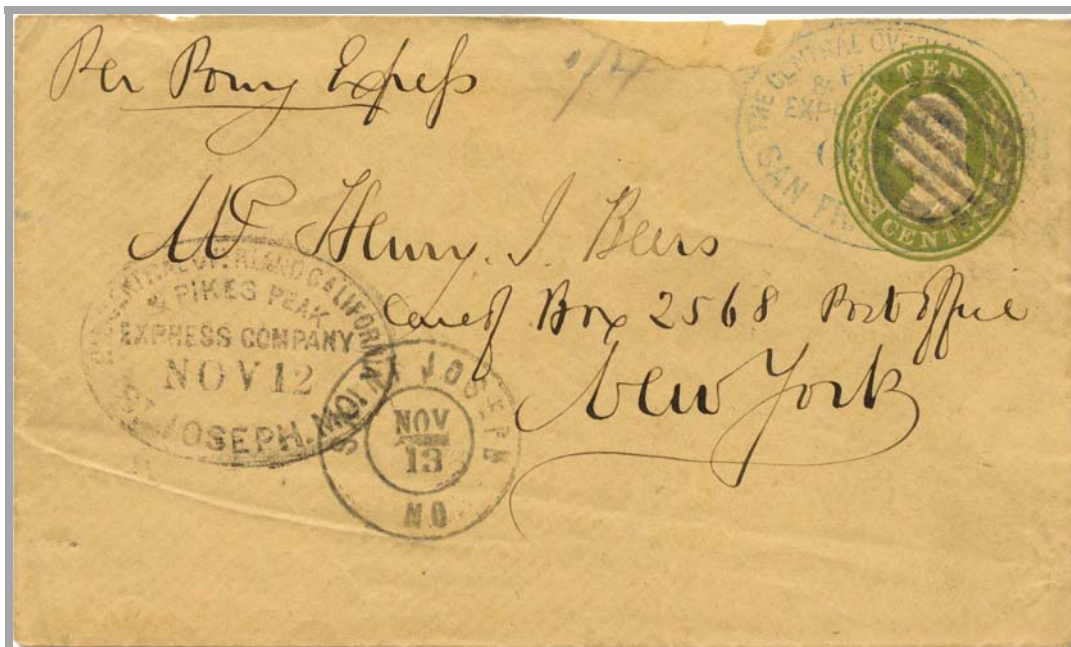 Per Pony Express
1/4
THE CENTRAL OVERL
& P
EXPR
SAN FR
TEN
CENTS
Mr Henry. J Beers
Care of Box 2568 Post Office
New York
CENTRAL OVERLAND CALIFORNIA
& PIKES PEAK
EXPRESS COMPANY
NOV 12
ST JOSEPH. MO
ST JOSEPH
NOV
13
MO